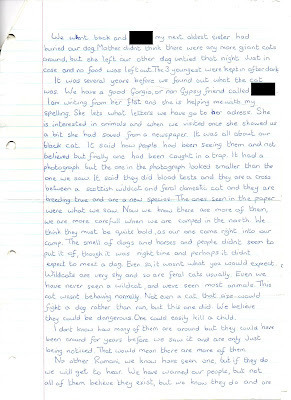 We went back and my next oldest sister had
buried our dog. Mother didnt think there were any more giant cats
around, but she left our other dog untied that night Just in
case and no food was left out. The 3 youngest were kept in after dark
It was several years before we found out what the cat
was. We have a good Gorgio, or non Gypsy friend called
I am writing from her flat and she is helping me with my
spelling. She lets what letters we have go to her adress. She
is interested in animals and when we visited once she showed us
a bit she had saved from a newspaper. It was all about our
black cat. It said how people had been seeing them and not
believed but finally one had been caught in a trap. It had a
photograph but the one in the photograph looked smaller than the
one we saw. It said they did blood tests and they are a cross
between a scottish wildcat and feral domestic cat and they are
breeding true and are a new species. The ones seen in the paper
were what we saw. Now we know there are more of them,
we are more carefull when we are camped in the north. We
think they must be quite bold, as our one came right into our
camp. The smell of dogs and horses and people didnt seem to
put it off, though it was night time and perhaps it didnt
expect to meet a dog. Even so, it wasnt what you would expect.
Wildcats are very shy and so are feral cats usually. Even we
have never seen a wildcat, and weve seen most animals. This
cat wasnt behaving normally. Not even a cat that size would
fight a dog rather than run, but this one did. We believe
they could be dangerous. One could easily kill a child.
I dont know how many of them are around but they could have
been around for years before we saw it and are only Just
being noticed. That would mean there are more of them.
No other Romani we know have seen one, but if they do
we will get to hear. We have warned our people, but not
all of them believe they exist, but we know they do and are